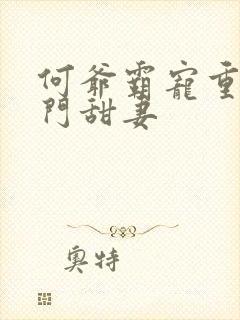 何爺霸寵重
門甜妻
奧特